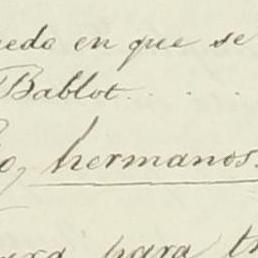 en que se
Bablot. . . .
hermanos.
para